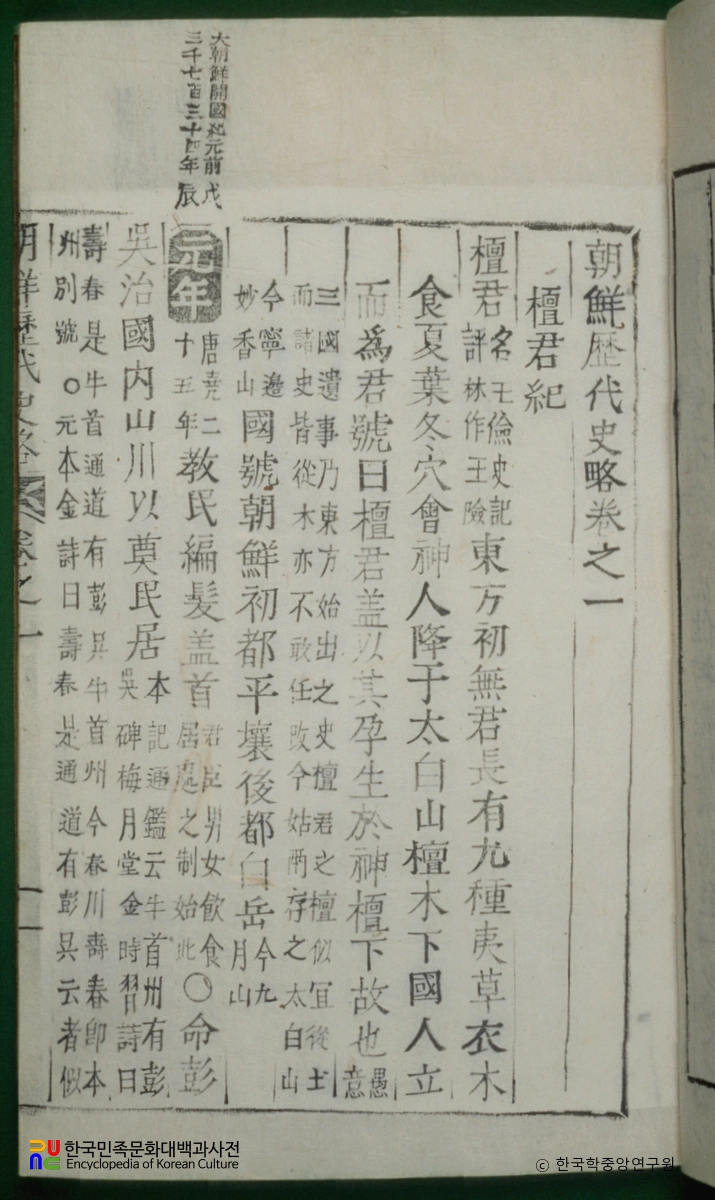 大朝鮮開國紀元前戊
三千七百三十四年辰
朝鮮歷代史略卷之一
檀君紀
檀君名王儉史記評林作王險東方初無君長有九種夷草衣木
食夏葉冬穴會神人降于太白山檀木下國人立
而爲君號曰檀君盖以其孕生於神檀下故也愚意
三國遺事乃東方始出之史檀君之檀似宜從土
而諸史皆從木亦不敢任改今姑兩存之太白山
今寧邊妙香山國號朝鮮初都平壤後都白岳今九月山
元年唐堯二十五年教民編髮盖首君臣男女飮食居處之制始此○命彭
吳治國內山川以奠民居本記通鑑云牛首州有彭吳碑梅月堂金時習詩曰
壽春是牛首通道有彭吳牛首州今春川壽春卽本
州別號○元本金詩曰壽春是通道有彭吳云者似
朝鮮歷代史略 卷之一 一
한국민족문화대백과사전
Encyclopedia of Korean Culture
© 한국학중앙연구원